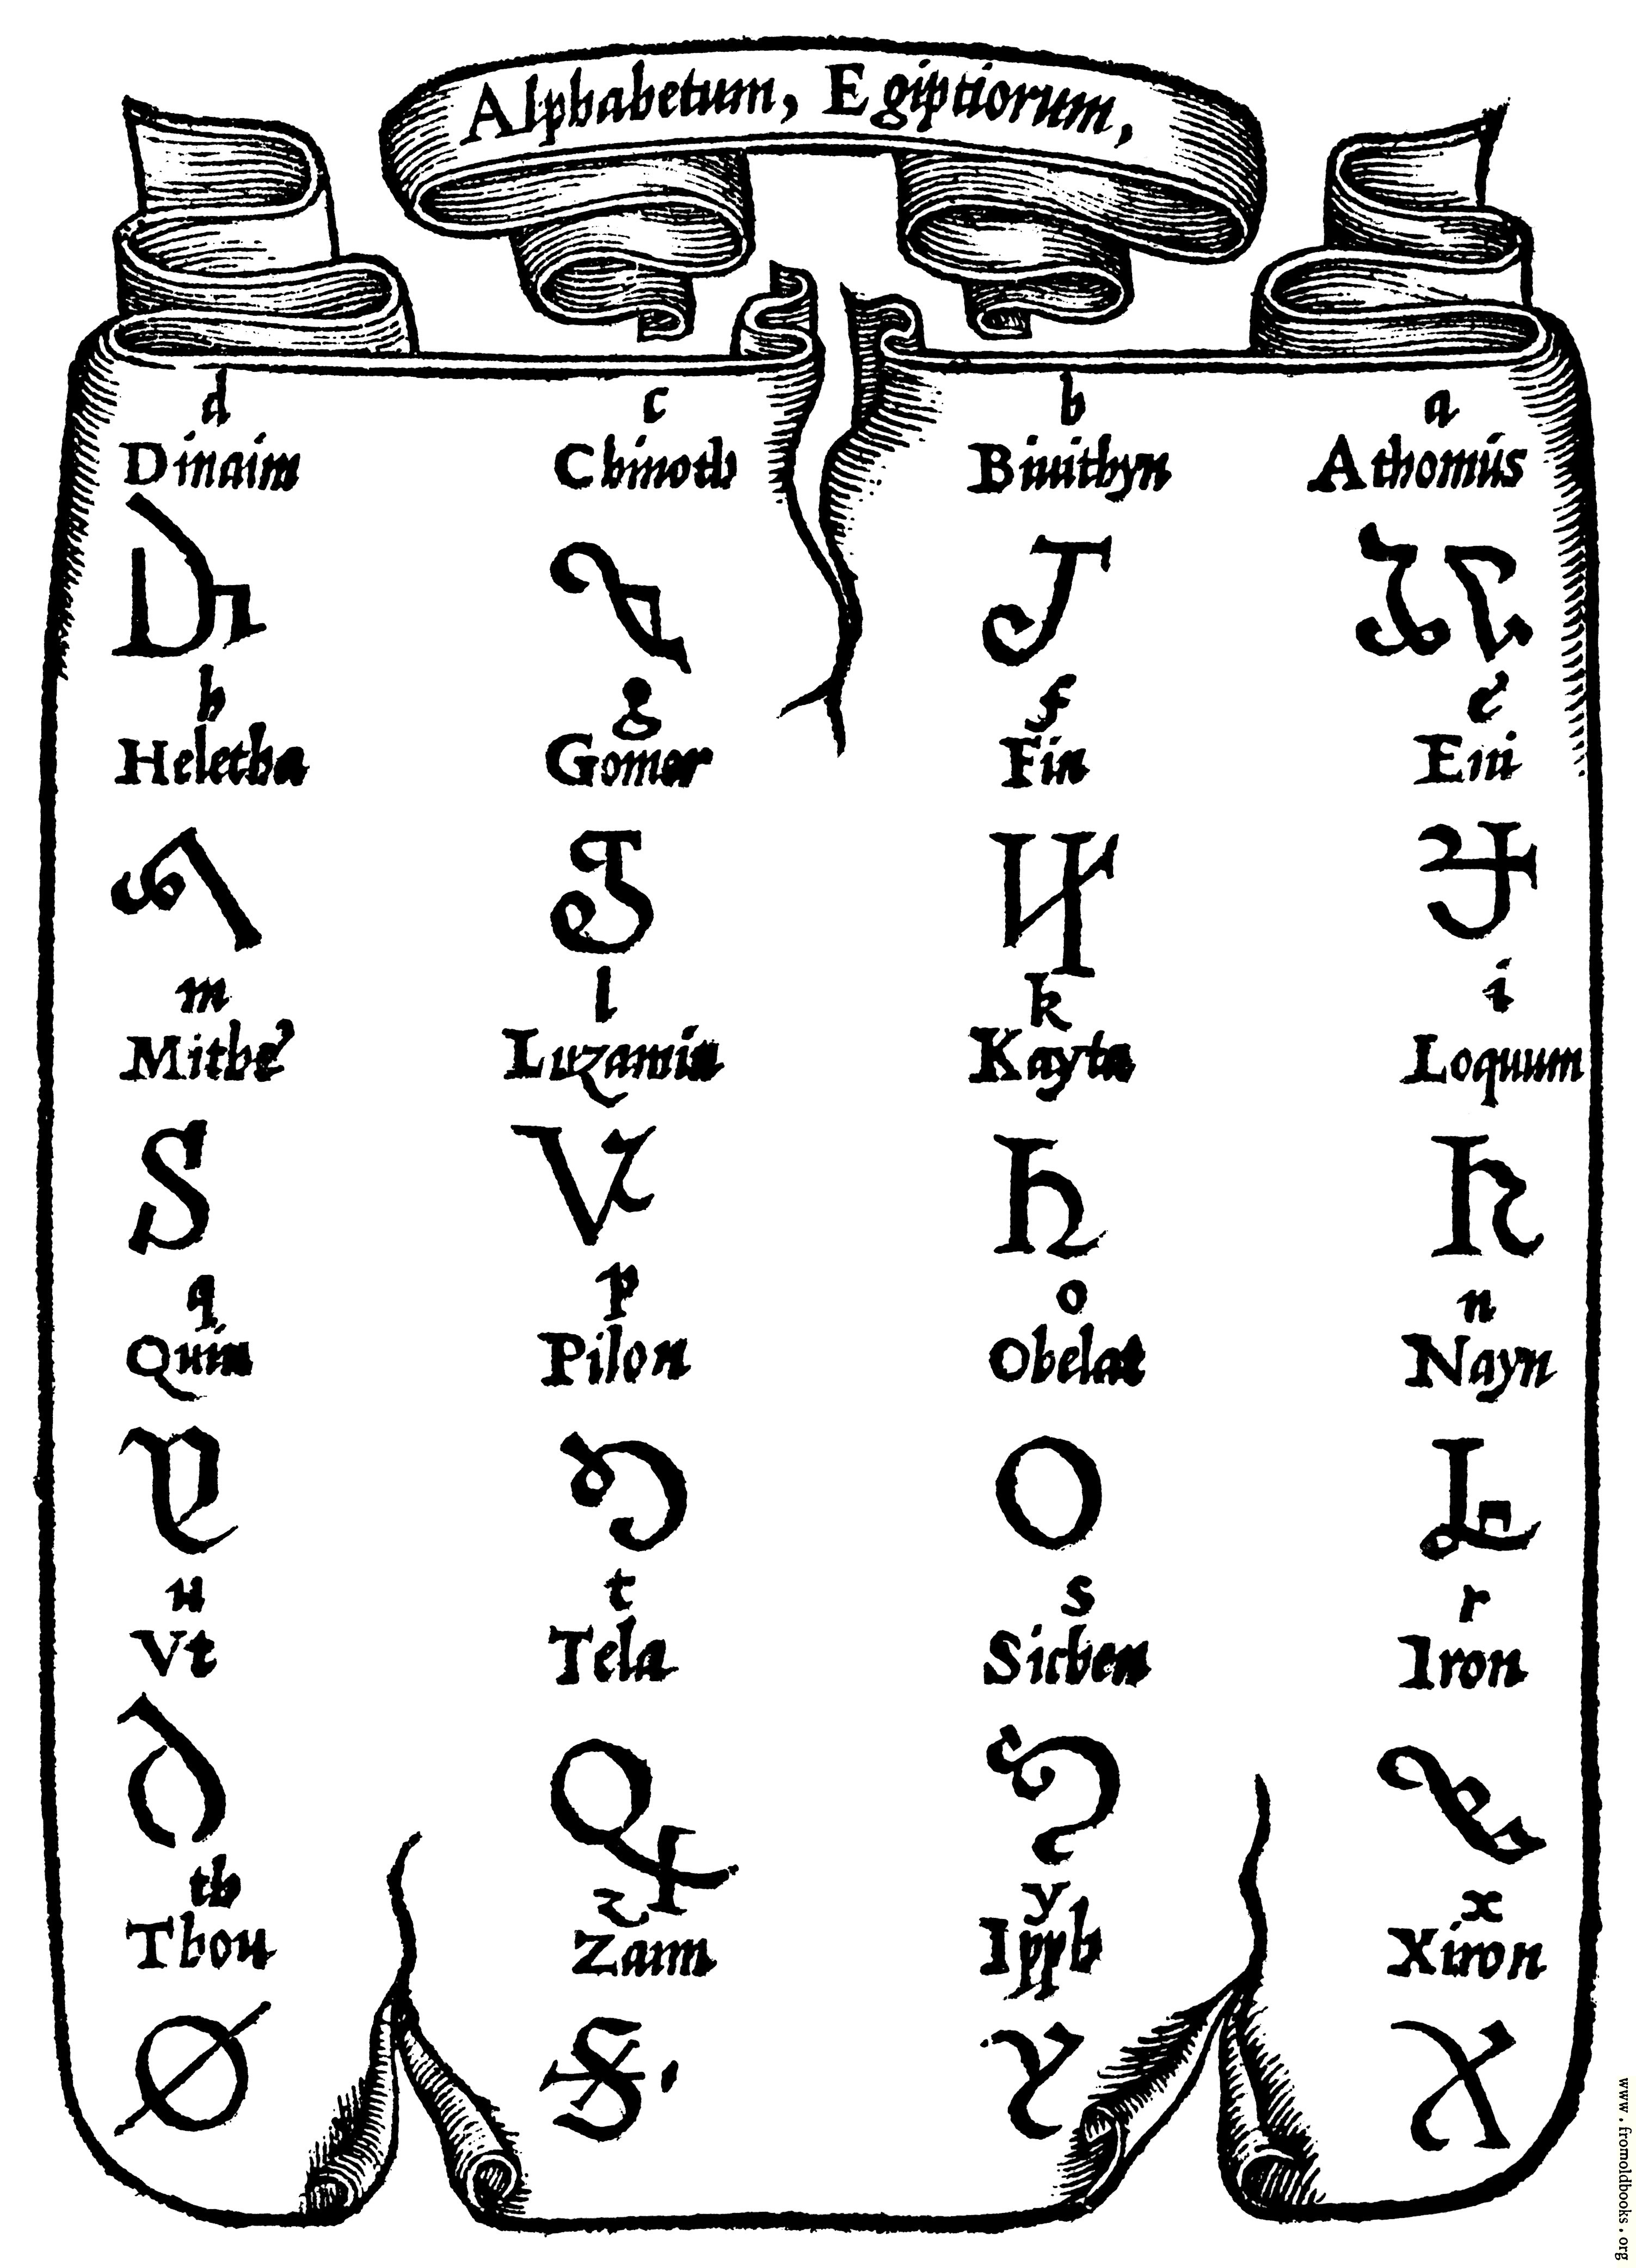 Alphabetum, Egiptiorum,
d c b a
Dinaim Chinoth Biuithyn Athomus
h g f e
Heletha Gomor Fin Eni
m l k i
Mithe Luzamin Kayta Loquum
q p o n
Quin Pilon Obelat Nayn
u t s r
Vt Tela Sichen Iron
th z y x
Thou Zain Ipph Xiron
www.fromoldbooks.org